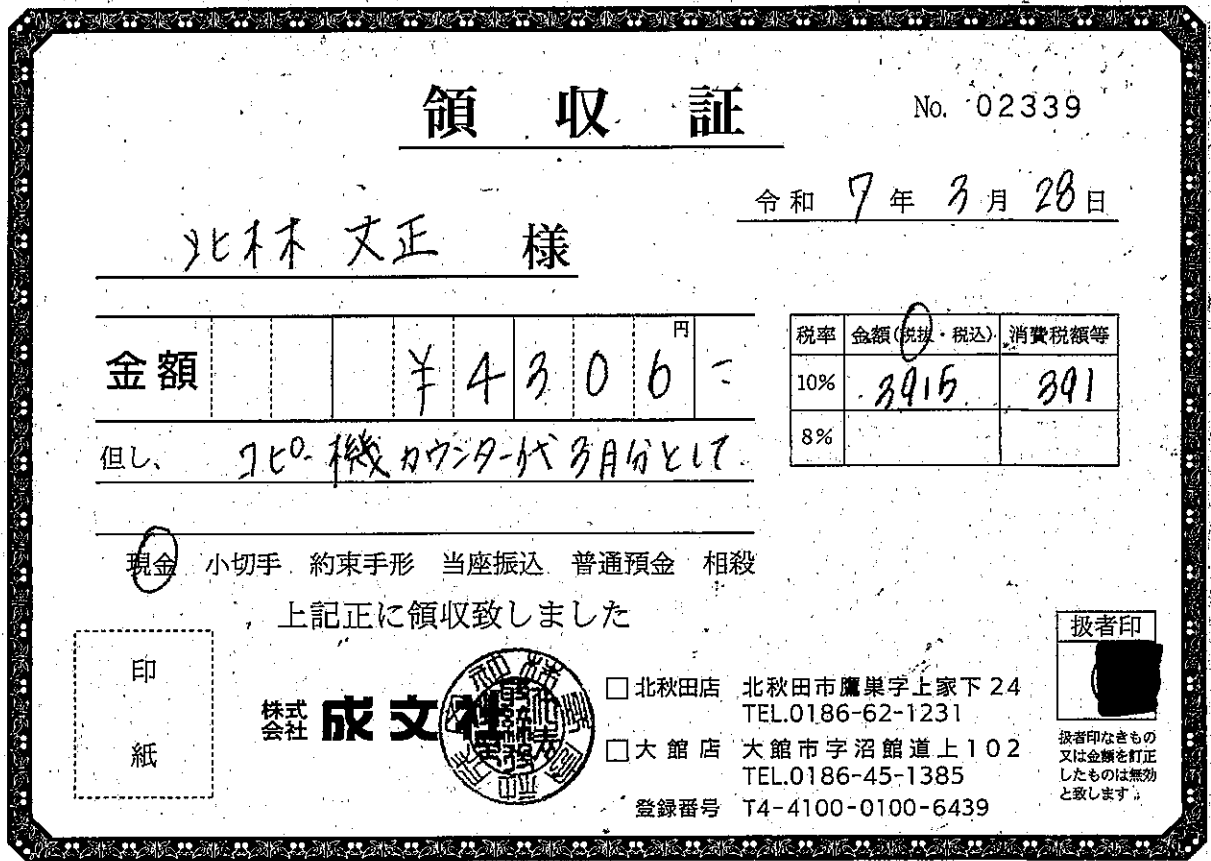 領収証
No. 02339
令和 7年 3月 28日
北林 丈正 様
金額 ¥4306 円
税率 金額(税抜・税込) 消費税額等
10% 3915 391
8%
但し、 コピー機カウンター代3月分として
現金 小切手 約束手形 当座振込 普通預金 相殺
上記正に領収致しました
印紙
株式会社 成文社
□北秋田店 北秋田市鷹巣字上家下24
TEL.0186-62-1231
□大館店 大館市字沼館道上102
TEL.0186-45-1385
登録番号 T4-4100-0100-6439
扱者印
扱者印なきもの
又は金額を訂正
したものは無効
と致します。